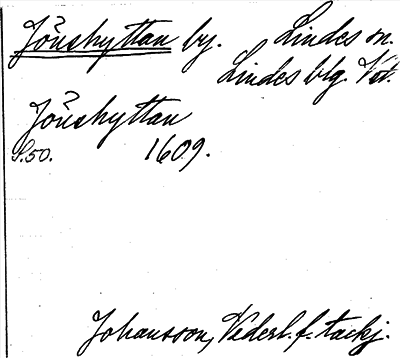 Jönshyttan by. Lindes sn.
Lindes blg. Vst.
Jönshyttan
S.50. 1609.
Johansson, Vederl. f. tackj.